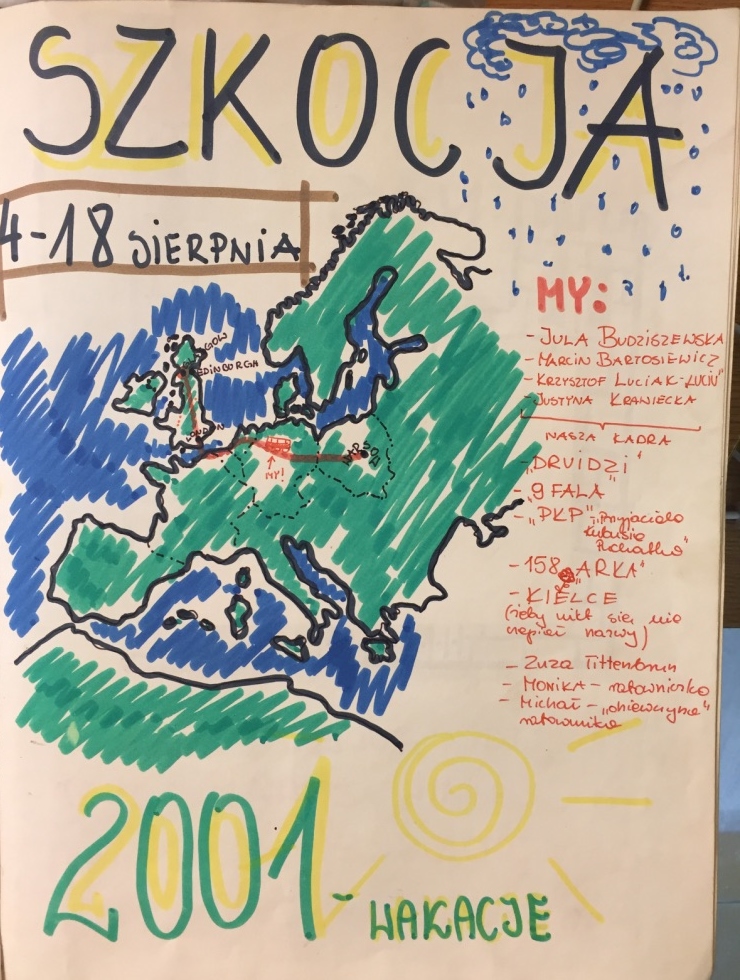 SZKOCJA
4-18 SIERPNIA
GOW
EDINBORGH
LONDON
MY!
MY:
- JULA BUDZISZEWSKA
- MARCIN BARTOSIEWICZ
- KRZYSZTOF LUCIAK-"LUCIU"
- JUSTYNA KRAWIECKA
NASZA KADRA
- "DRUIDZI"
- "9 FALA"
- "PKP" - "Przyjaciele
Kubusia
Puchatka"
- 158 "ARKA"
- KIELCE
(żeby nikt się nie
czepiał nazwy)
- Zuza Tittenbrun
- MONIKA - ratowniczka
- Michał -
ratownika
2001 - WAKACJE